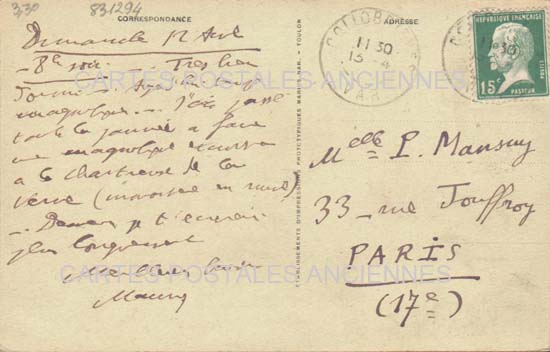 3,30
831294
CORRESPONDANCE
ADRESSE
Dimanche 12 Avril
- 8h soir - Tres bien
dormi - Temps
magnifique - J'ai passé
toute la journée à faire
une magnifique excursion
a la Chartreuse de la
Verne ( en ruines)
- Demain je t'écrirai
plus longuement
Meilleurs baisers
Maury
ETABLISSEMENTS D'IMPRESSIONS PHOTOTYPIQUES MARIUS BAR. - TOULON
11 30
13 - 4
VAR
REPUBLIQUE FRANÇAISE
15c
PASTEUR
POSTES
Melle P. Mansuy
33 - rue Jouffroy
PARIS
(17e)
CARTES POSTALES ANCIENNES
CARTES POSTALES ANCIENNES